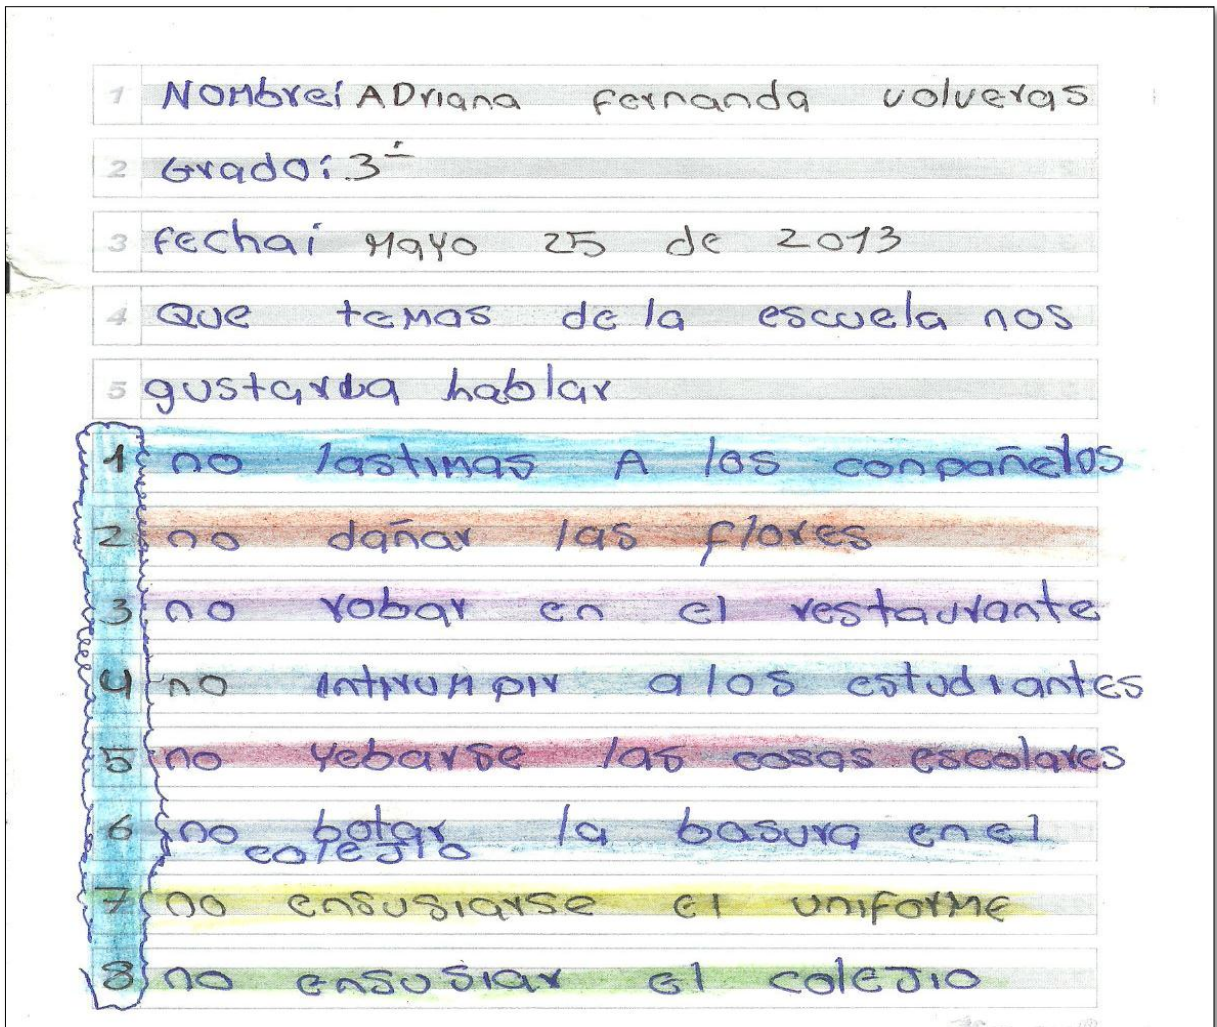 1 Nombre: ADriana fernanda volveras
2 Grado: 3º
3 fecha: Mayo 25 de 2013
4 Que temas de la escuela nos
5 gustarba hablar
1 no lastimas A los conpañelos
2 no dañar las flores
3 no robar en el restaurante
4 no intrrumpir a los estudiantes
5 no yebarse las cosas escolares
6 no botar la basura en el
colejio
7 no ensusiarse el uniforme
8 no ensusiar el colejio